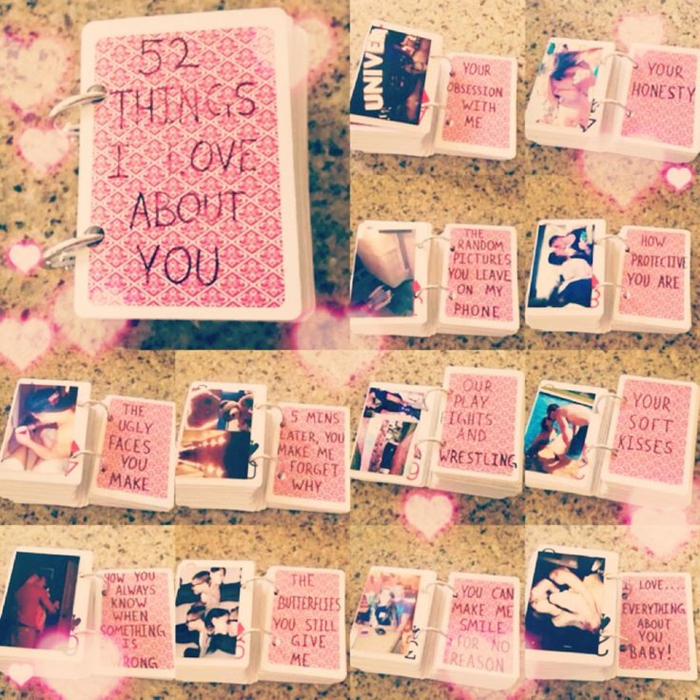 52
THINGS
I LOVE
ABOUT
YOU
UNIVE
YOUR
OBSESSION
WITH
ME
YOUR
HONESTY
THE
RANDOM
PICTURES
YOU LEAVE
ON MY
PHONE
HOW
PROTECTIVE
YOU ARE
THE
UGLY
FACES
YOU
MAKE
5 MINS
LATER, YOU
MAKE ME
FORGET
WHY
OUR
PLAY
FIGHTS
AND
WRESTLING
YOUR
SOFT
KISSES
HOW YOU
ALWAYS
KNOW
WHEN
SOMETHING
IS
WRONG
THE
BUTTERFLIES
YOU STILL
GIVE
ME
YOU CAN
MAKE ME
SMILE
FOR NO
REASON
I LOVE...
EVERYTHING
ABOUT
YOU
BABY!